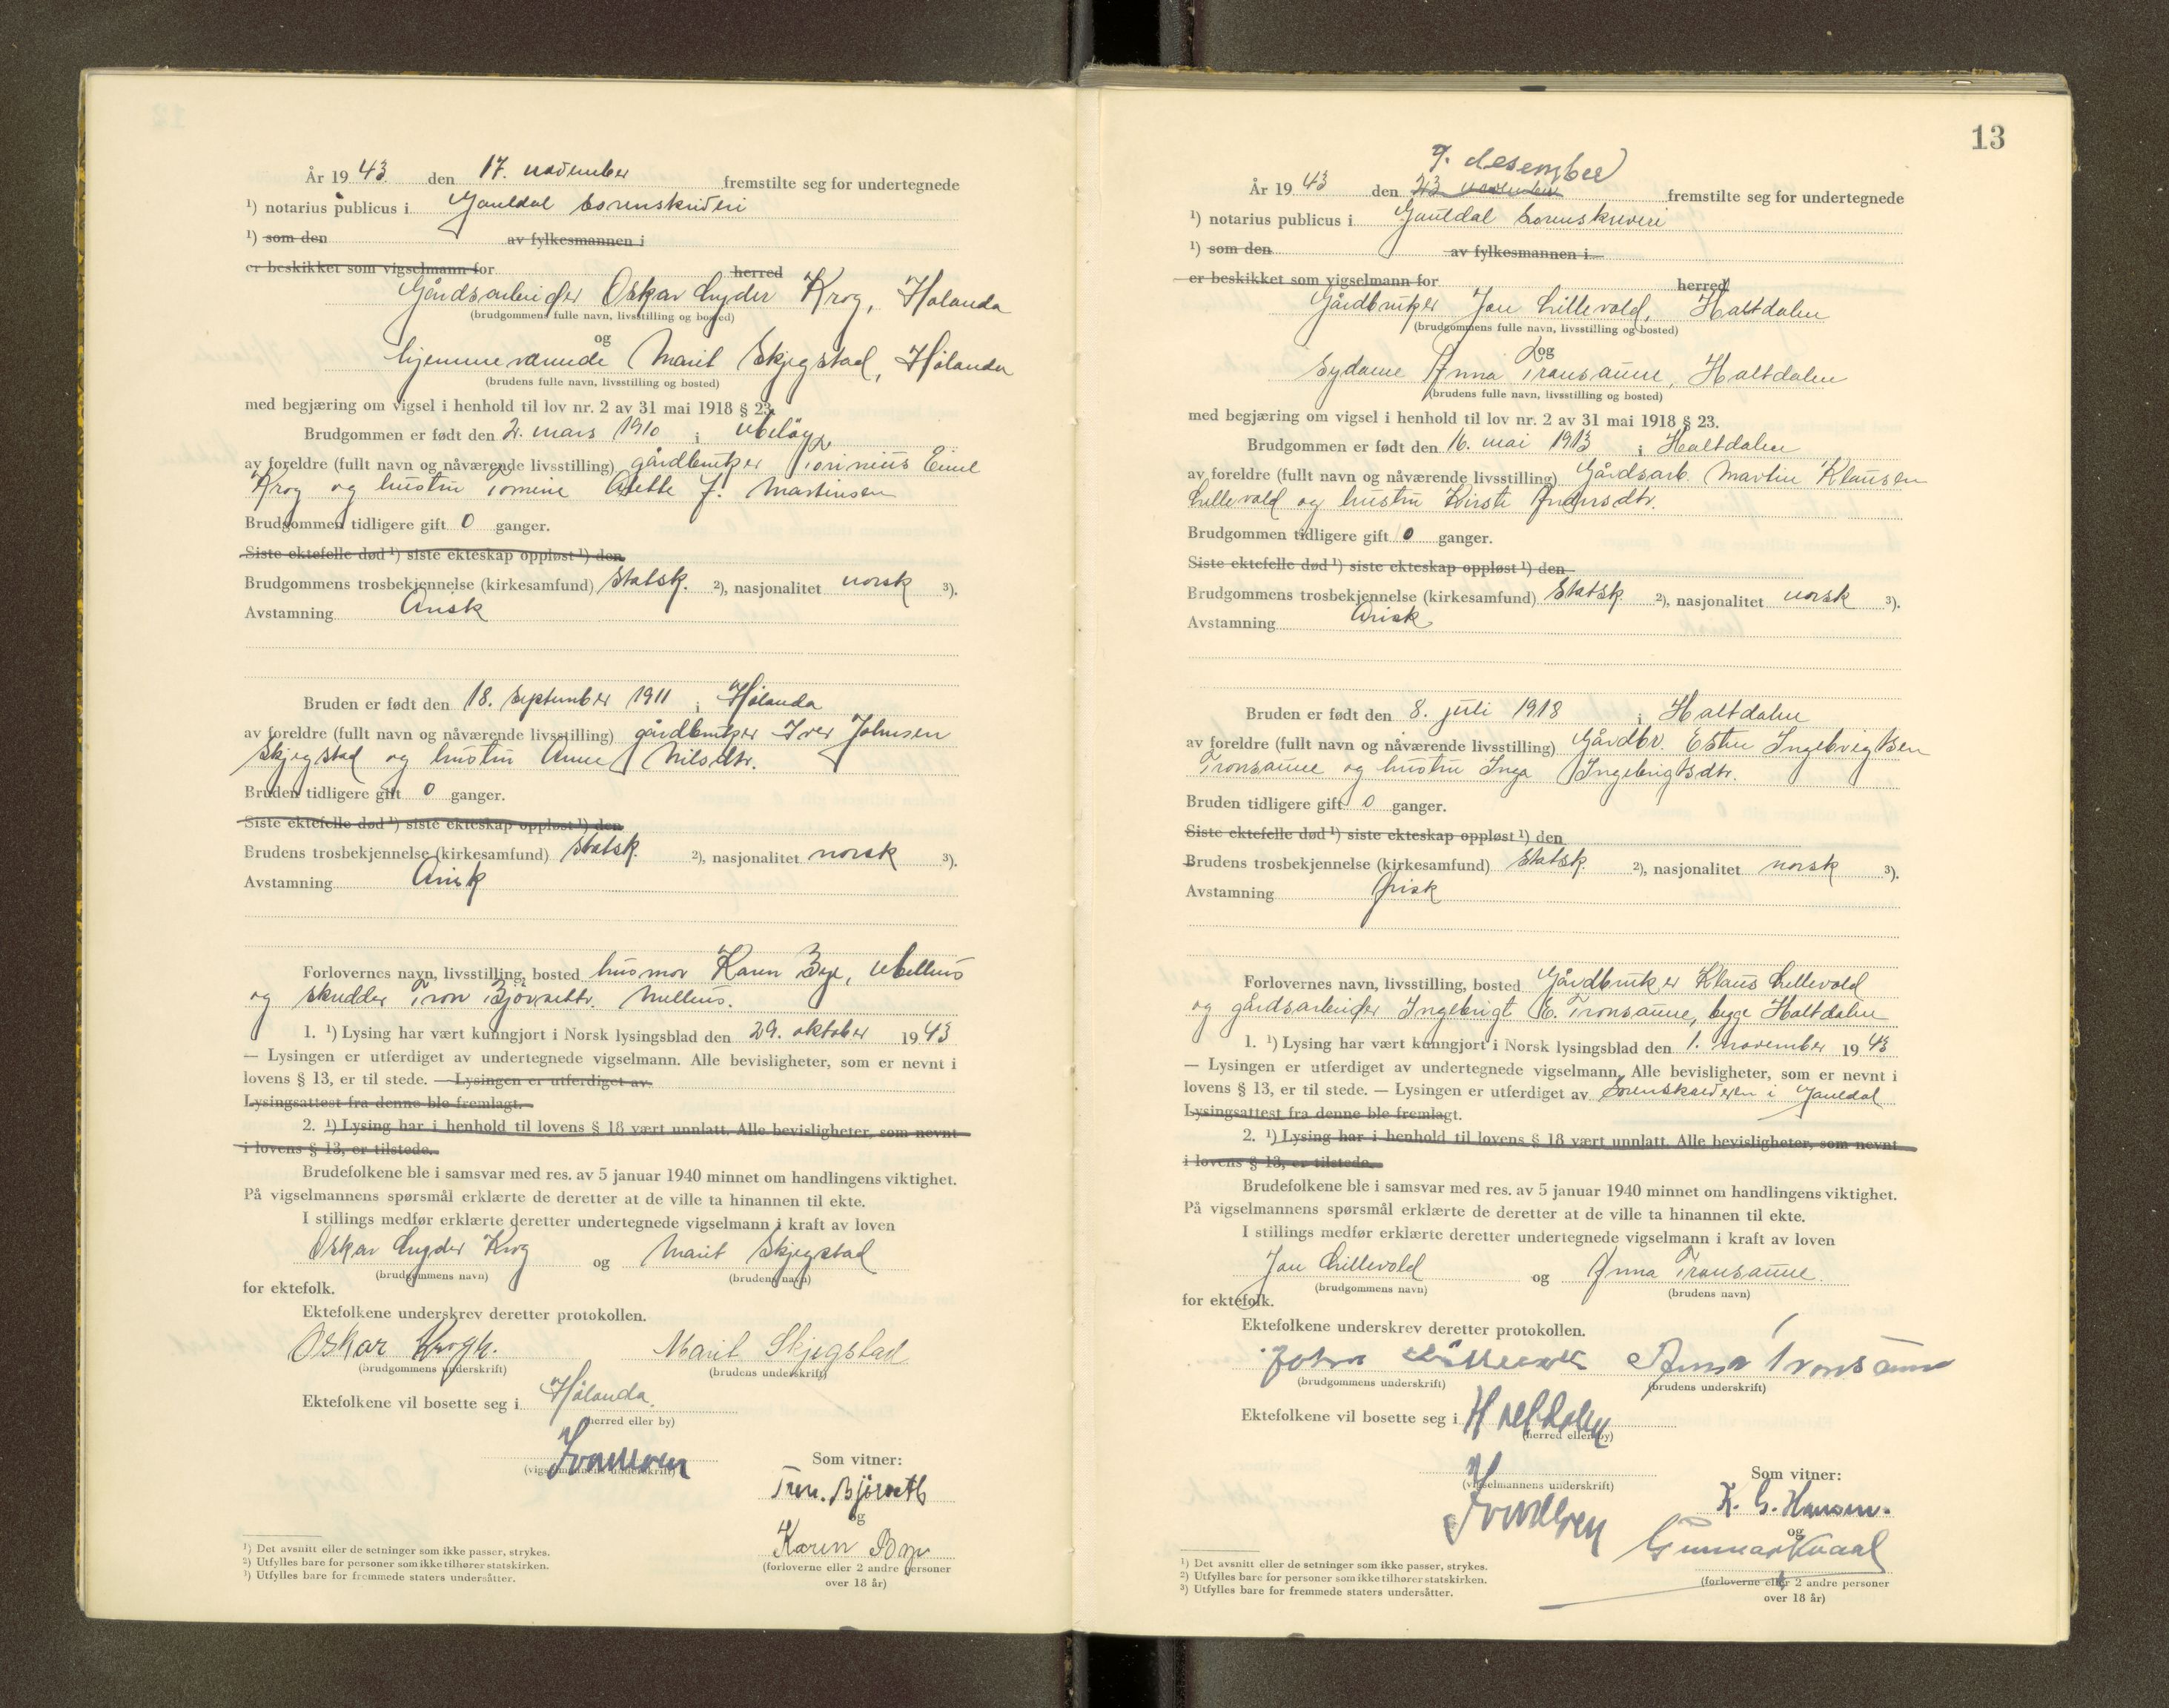 År 1943 den 17. november fremstilte seg for undertegnede
¹) notarius publicus i Gauldal sorenskriveri
¹) som den av fylkesmannen i
er beskikket som vigselmann for herred
Gårdsarbeider Oskar Lyder Krog, Hølanda
(brudgommens fulle navn, livsstilling og bosted)
og
hjemmeværende Marit Skjegstad, Hølanda
(brudens fulle navn, livsstilling og bosted)
med begjæring om vigsel i henhold til lov nr. 2 av 31 mai 1918 § 23.
Brudgommen er født den 2. mars 1910 i
av foreldre (fullt navn og nåværende livsstilling) gårdbruker Torinius Emil
Krog og hustru Tomine J. Martinsen
Brudgommen tidligere gift 0 ganger.
Siste ektefelle død ¹) siste ekteskap oppløst ¹) den
Brudgommens trosbekjennelse (kirkesamfund) Statsk. ²), nasjonalitet norsk ³).
Avstamning Arisk
Bruden er født den 18. september 1911 i Hølanda
av foreldre (fullt navn og nåværende livsstilling) gårdbruker Iver Johnsen
Skjegstad og hustru Anne Nilsdtr.
Bruden tidligere gift 0 ganger.
Siste ektefelle død ¹) siste ekteskap oppløst ¹) den
Brudens trosbekjennelse (kirkesamfund) Statsk. ²), nasjonalitet norsk ³).
Avstamning Arisk
Forlovernes navn, livsstilling, bosted husmor Karen Bye, Melhus
og skredder Tron Bjørseth. Melhus.
1. ¹) Lysing har vært kunngjort i Norsk lysingsblad den 29. oktober 1943
— Lysingen er utferdiget av undertegnede vigselmann. Alle bevisligheter, som er nevnt i
lovens § 13, er til stede. — Lysingen er utferdiget av
Lysingsattest fra denne ble fremlagt.
2. ¹) Lysing har i henhold til lovens § 18 vært unnlatt. Alle bevisligheter, som nevnt
i lovens § 13, er tilstede.
Brudefolkene ble i samsvar med res. av 5 januar 1940 minnet om handlingens viktighet.
På vigselmannens spørsmål erklærte de deretter at de ville ta hinannen til ekte.
I stillings medfør erklærte deretter undertegnede vigselmann i kraft av loven
Oskar Lyder Krog og Marit Skjegstad
(brudgommens navn) (brudens navn)
for ektefolk.
Ektefolkene underskrev deretter protokollen.
Oskar Krogh. Marit Skjegstad
(brudgommens underskrift) (brudens underskrift)
Ektefolkene vil bosette seg i Hølanda.
(herred eller by)
(vigselmannens underskrift)
Som vitner:
Tron. Bjørseth
og
Karen Bye
(forloverne eller 2 andre personer
over 18 år)
¹) Det avsnitt eller de setninger som ikke passer, strykes.
²) Utfylles bare for personer som ikke tilhører statskirken.
³) Utfylles bare for fremmede staters undersåtter.
13
9. desember
År 1943 den 23 november fremstilte seg for undertegnede
¹) notarius publicus i Gauldal sorenskriveri
¹) som den av fylkesmannen i
er beskikket som vigselmann for herred
Gårdbruker Jon Lillevold, Haltdalen
(brudgommens fulle navn, livsstilling og bosted)
og
Sydame Anna Tronsaune, Haltdalen
(brudens fulle navn, livsstilling og bosted)
med begjæring om vigsel i henhold til lov nr. 2 av 31 mai 1918 § 23.
Brudgommen er født den 16. mai 1913 i Haltdalen
av foreldre (fullt navn og nåværende livsstilling) Gårdsarb. Martin Klausen
Lillevold og hustru Kirsti Andersdtr.
Brudgommen tidligere gift 0 ganger.
Siste ektefelle død ¹) siste ekteskap oppløst ¹) den
Brudgommens trosbekjennelse (kirkesamfund) Statsk. ²), nasjonalitet norsk ³).
Avstamning Arisk
Bruden er født den 8. juli 1918 i Haltdalen
av foreldre (fullt navn og nåværende livsstilling) Gårdbr. Esten Ingebrigtsen
Tronsaune og hustru Inga Ingebrigtsdtr.
Bruden tidligere gift 0 ganger.
Siste ektefelle død ¹) siste ekteskap oppløst ¹) den
Brudens trosbekjennelse (kirkesamfund) Statsk. ²), nasjonalitet norsk ³).
Avstamning Arisk
Forlovernes navn, livsstilling, bosted Gårdbruker Klaus Lillevold
og gårdsarbeider Ingebrigt E. Tronsaune, begge Haltdalen
1. ¹) Lysing har vært kunngjort i Norsk lysingsblad den 1. november 1943
— Lysingen er utferdiget av undertegnede vigselmann. Alle bevisligheter, som er nevnt i
lovens § 13, er til stede. — Lysingen er utferdiget av Sorenskriveren i Gauldal
Lysingsattest fra denne ble fremlagt.
2. ¹) Lysing har i henhold til lovens § 18 vært unnlatt. Alle bevisligheter, som nevnt
i lovens § 13, er tilstede.
Brudefolkene ble i samsvar med res. av 5 januar 1940 minnet om handlingens viktighet.
På vigselmannens spørsmål erklærte de deretter at de ville ta hinannen til ekte.
I stillings medfør erklærte deretter undertegnede vigselmann i kraft av loven
Jon Lillevold og Anna Tronsaune.
(brudgommens navn) (brudens navn)
for ektefolk.
Ektefolkene underskrev deretter protokollen.
John Lillevold Anna Tronsaune
(brudgommens underskrift) (brudens underskrift)
Ektefolkene vil bosette seg i Haltdalen
(herred eller by)
(vigselmannens underskrift)
Som vitner:
K. G. Hansen.
og
Gunnar Kvaal
(forloverne eller 2 andre personer
over 18 år)
¹) Det avsnitt eller de setninger som ikke passer, strykes.
²) Utfylles bare for personer som ikke tilhører statskirken.
³) Utfylles bare for fremmede staters undersåtter.